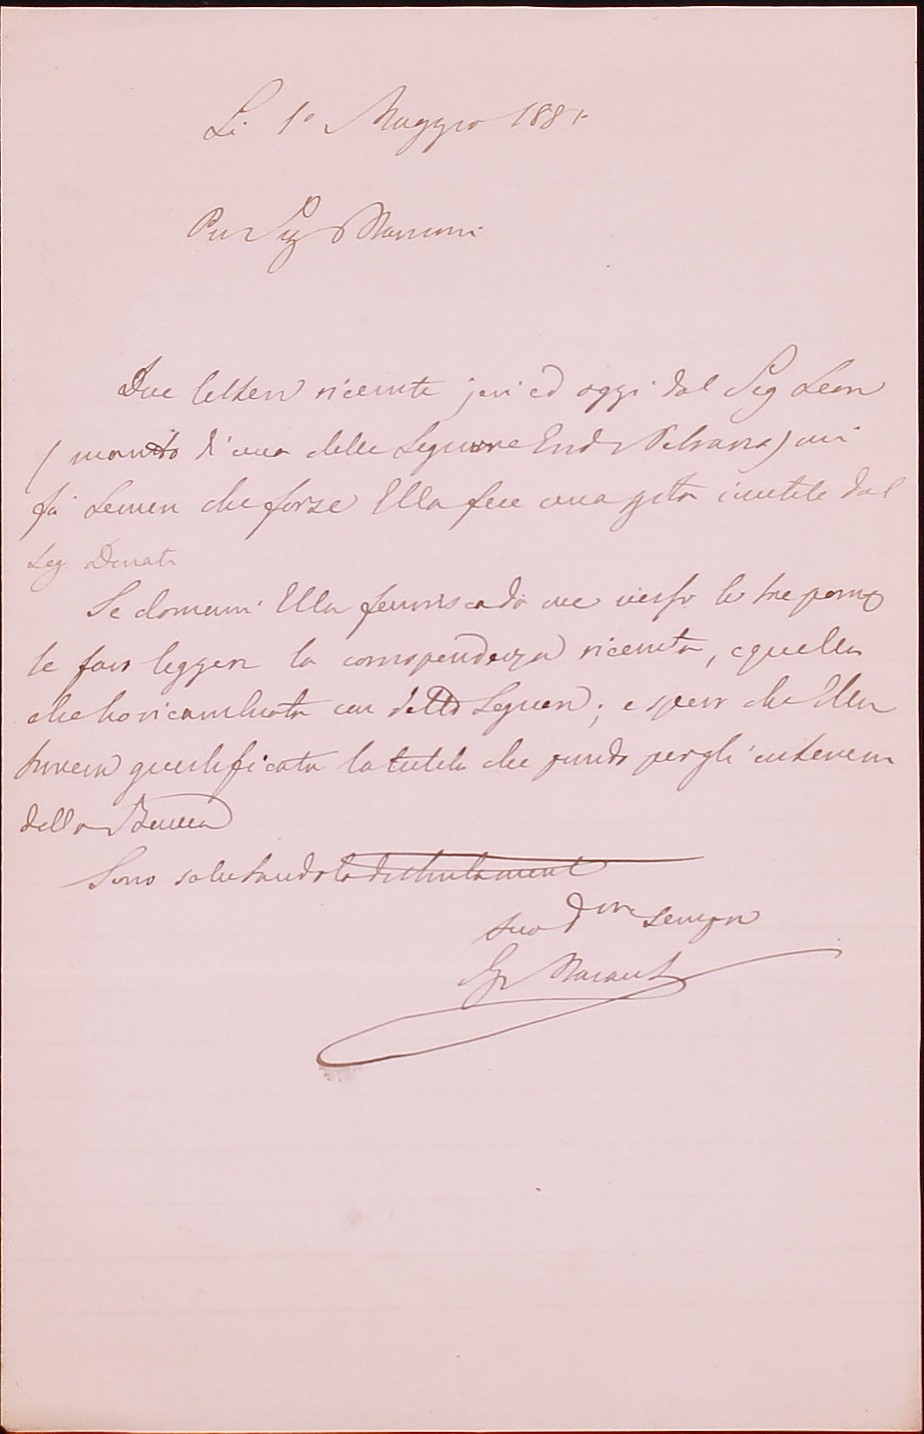 Li 1º Maggio 188
Sig
Due lettere ricevute jeri ed oggi dal Sig Leon
(marito d'una delle Signore Eredi) mi
fà temere che forse Ella fece una gita inutile dal
Sig Donati
Se domani Ella da me verso le tre pom
le farò leggere la corrispondenza ricevuta, e quella
che ho ricambiata con detto Signore; e spero che Ella
troverà giustificata la tutela che prendo per gli
della
Sono salutandola distintamente
suo sempre